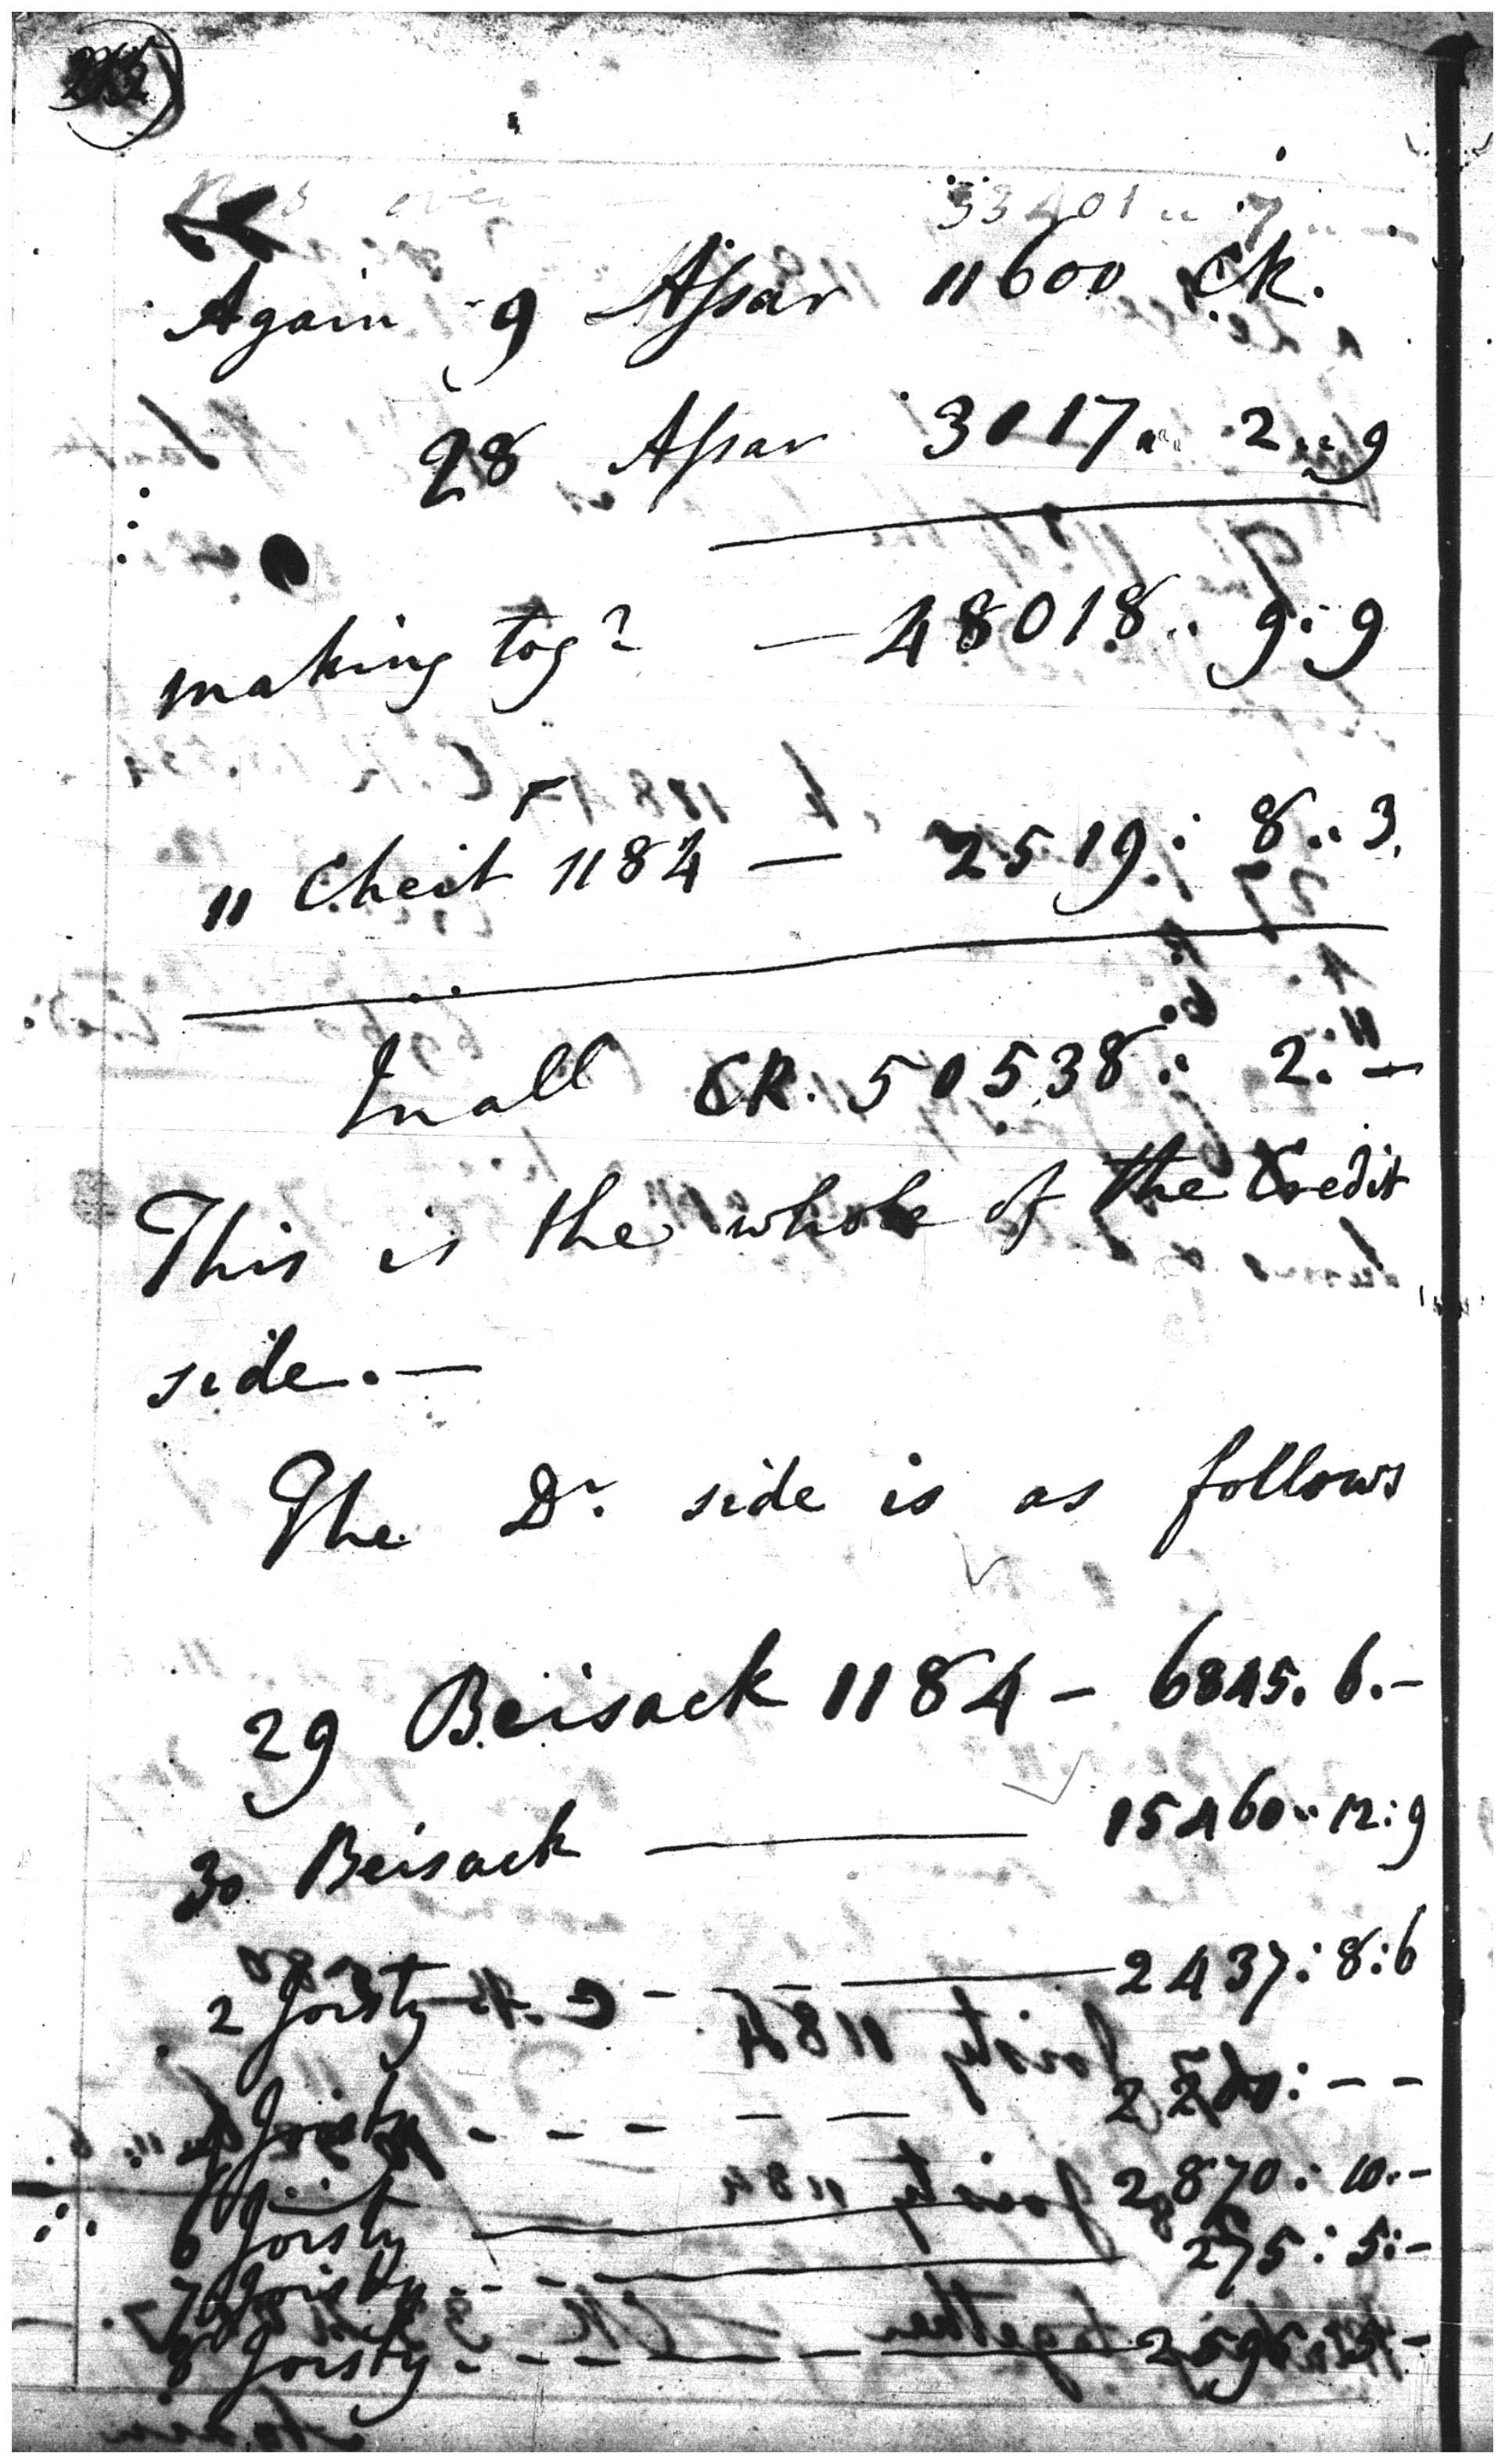 over 33401 " 7 " —
Again 9 Assar 11600 CR.
28 Assar 3017 " 2 " 9
making tog.r — 48018 .. 9 : 9
11 Cheit 1184 — 2519 : 8 .. 3.
In all CR. 50538 : 2. —
This is the whole of the Credit
side. —
The Dr. side is as follows
29 Beisack 1184 - 6845. 6. -
30 Beisack —— 15460 .. 12 : 9
2 Joisty - - - —— 2437 : 8 : 6
Joisty - - - — — : - -
6 Joisty —— 2870 : 10. -
7 Joisty - - - —— 275 : 5 : -
8 Joisty - - - - — —